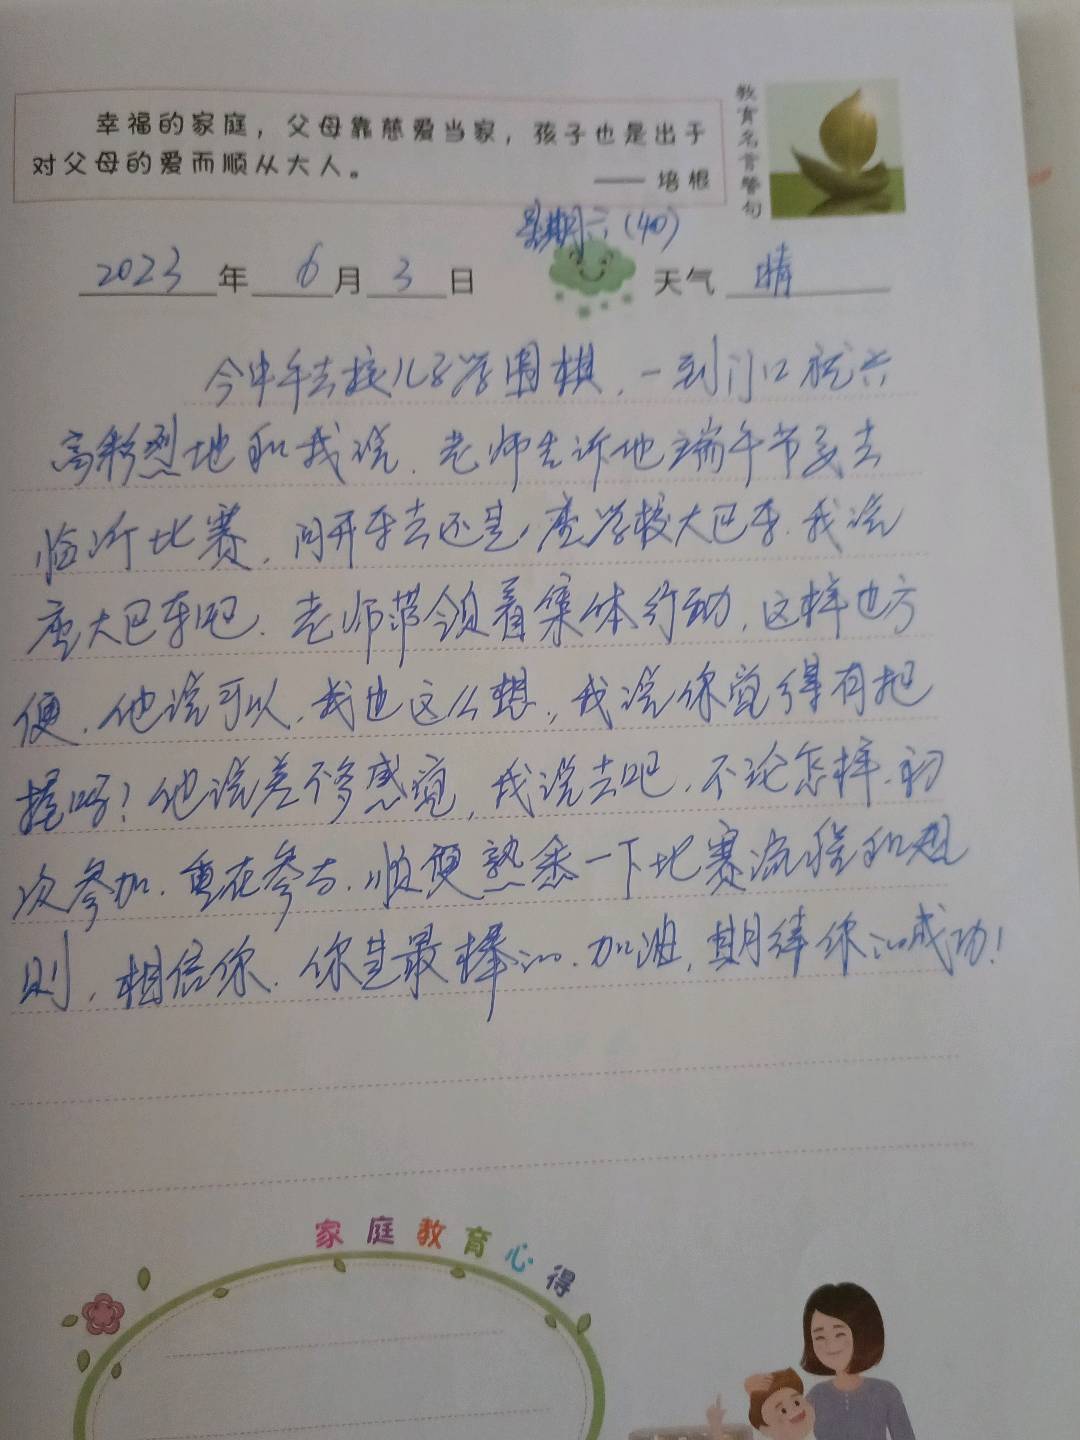 幸福的家庭，父母靠慈爱当家，孩子也是出于
对父母的爱而顺从大人。
—— 培根
教育名言警句
星期六（40）
2023年 6月 3日 天气 晴
今中午去接儿子学围棋，一到门口就兴
高彩烈地和我说，老师告诉他端午节要去
临沂比赛，问开车去还是座学校大巴车，我说
座大巴车吧，老师带领着集体行动，这样也方
便，他说可以，我也这么想，我说你觉得有把
握吗？他说差不多感觉，我说去吧，不论怎样，初
次参加，重在参与，顺便熟悉一下比赛流程和规
则，相信你，你是最棒的，加油，期待你的成功！
家庭教育心得